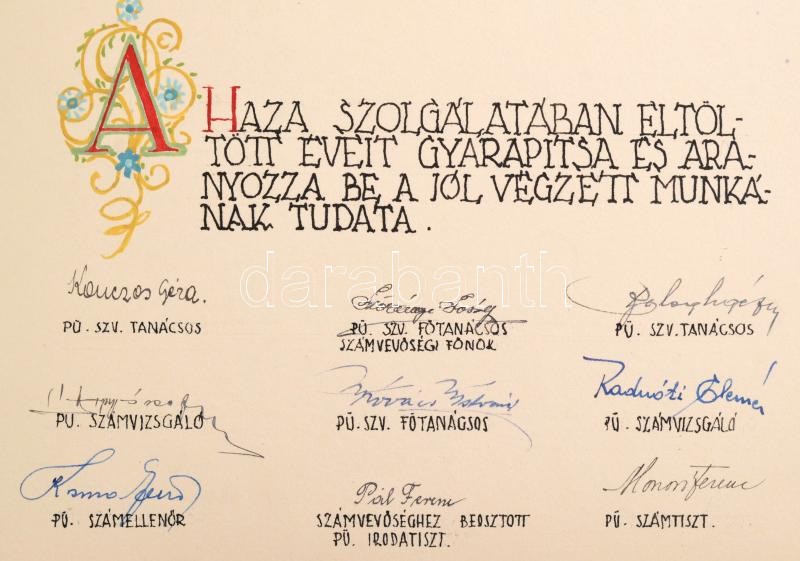 A HAZA SZOLGÁLATÁBAN ELTÖL-
TÖTT ÉVEIT GYARAPÍTSA ÉS ARA-
NYOZZA BE A JÓL VÉGZETT MUNKÁ-
NAK TUDATA.
darabanth
Konczos Géza.
PÜ. SZV. TANÁCSOS
PÜ. SZV. FŐTANÁCSOS
SZÁMVEVŐSÉGI FŐNÖK
PÜ. SZV. TANÁCSOS
PÜ. SZÁMVIZSGÁLÓ
Kovács István
PÜ. SZV. FŐTANÁCSOS
Radnóti Elemér
PÜ. SZÁMVIZSGÁLÓ
PÜ. SZÁMELLENŐR
Pál Ferenc
SZÁMVEVŐSÉGHEZ BEOSZTOTT
PÜ. IRODATISZT.
Monori Ferenc
PÜ. SZÁMTISZT.